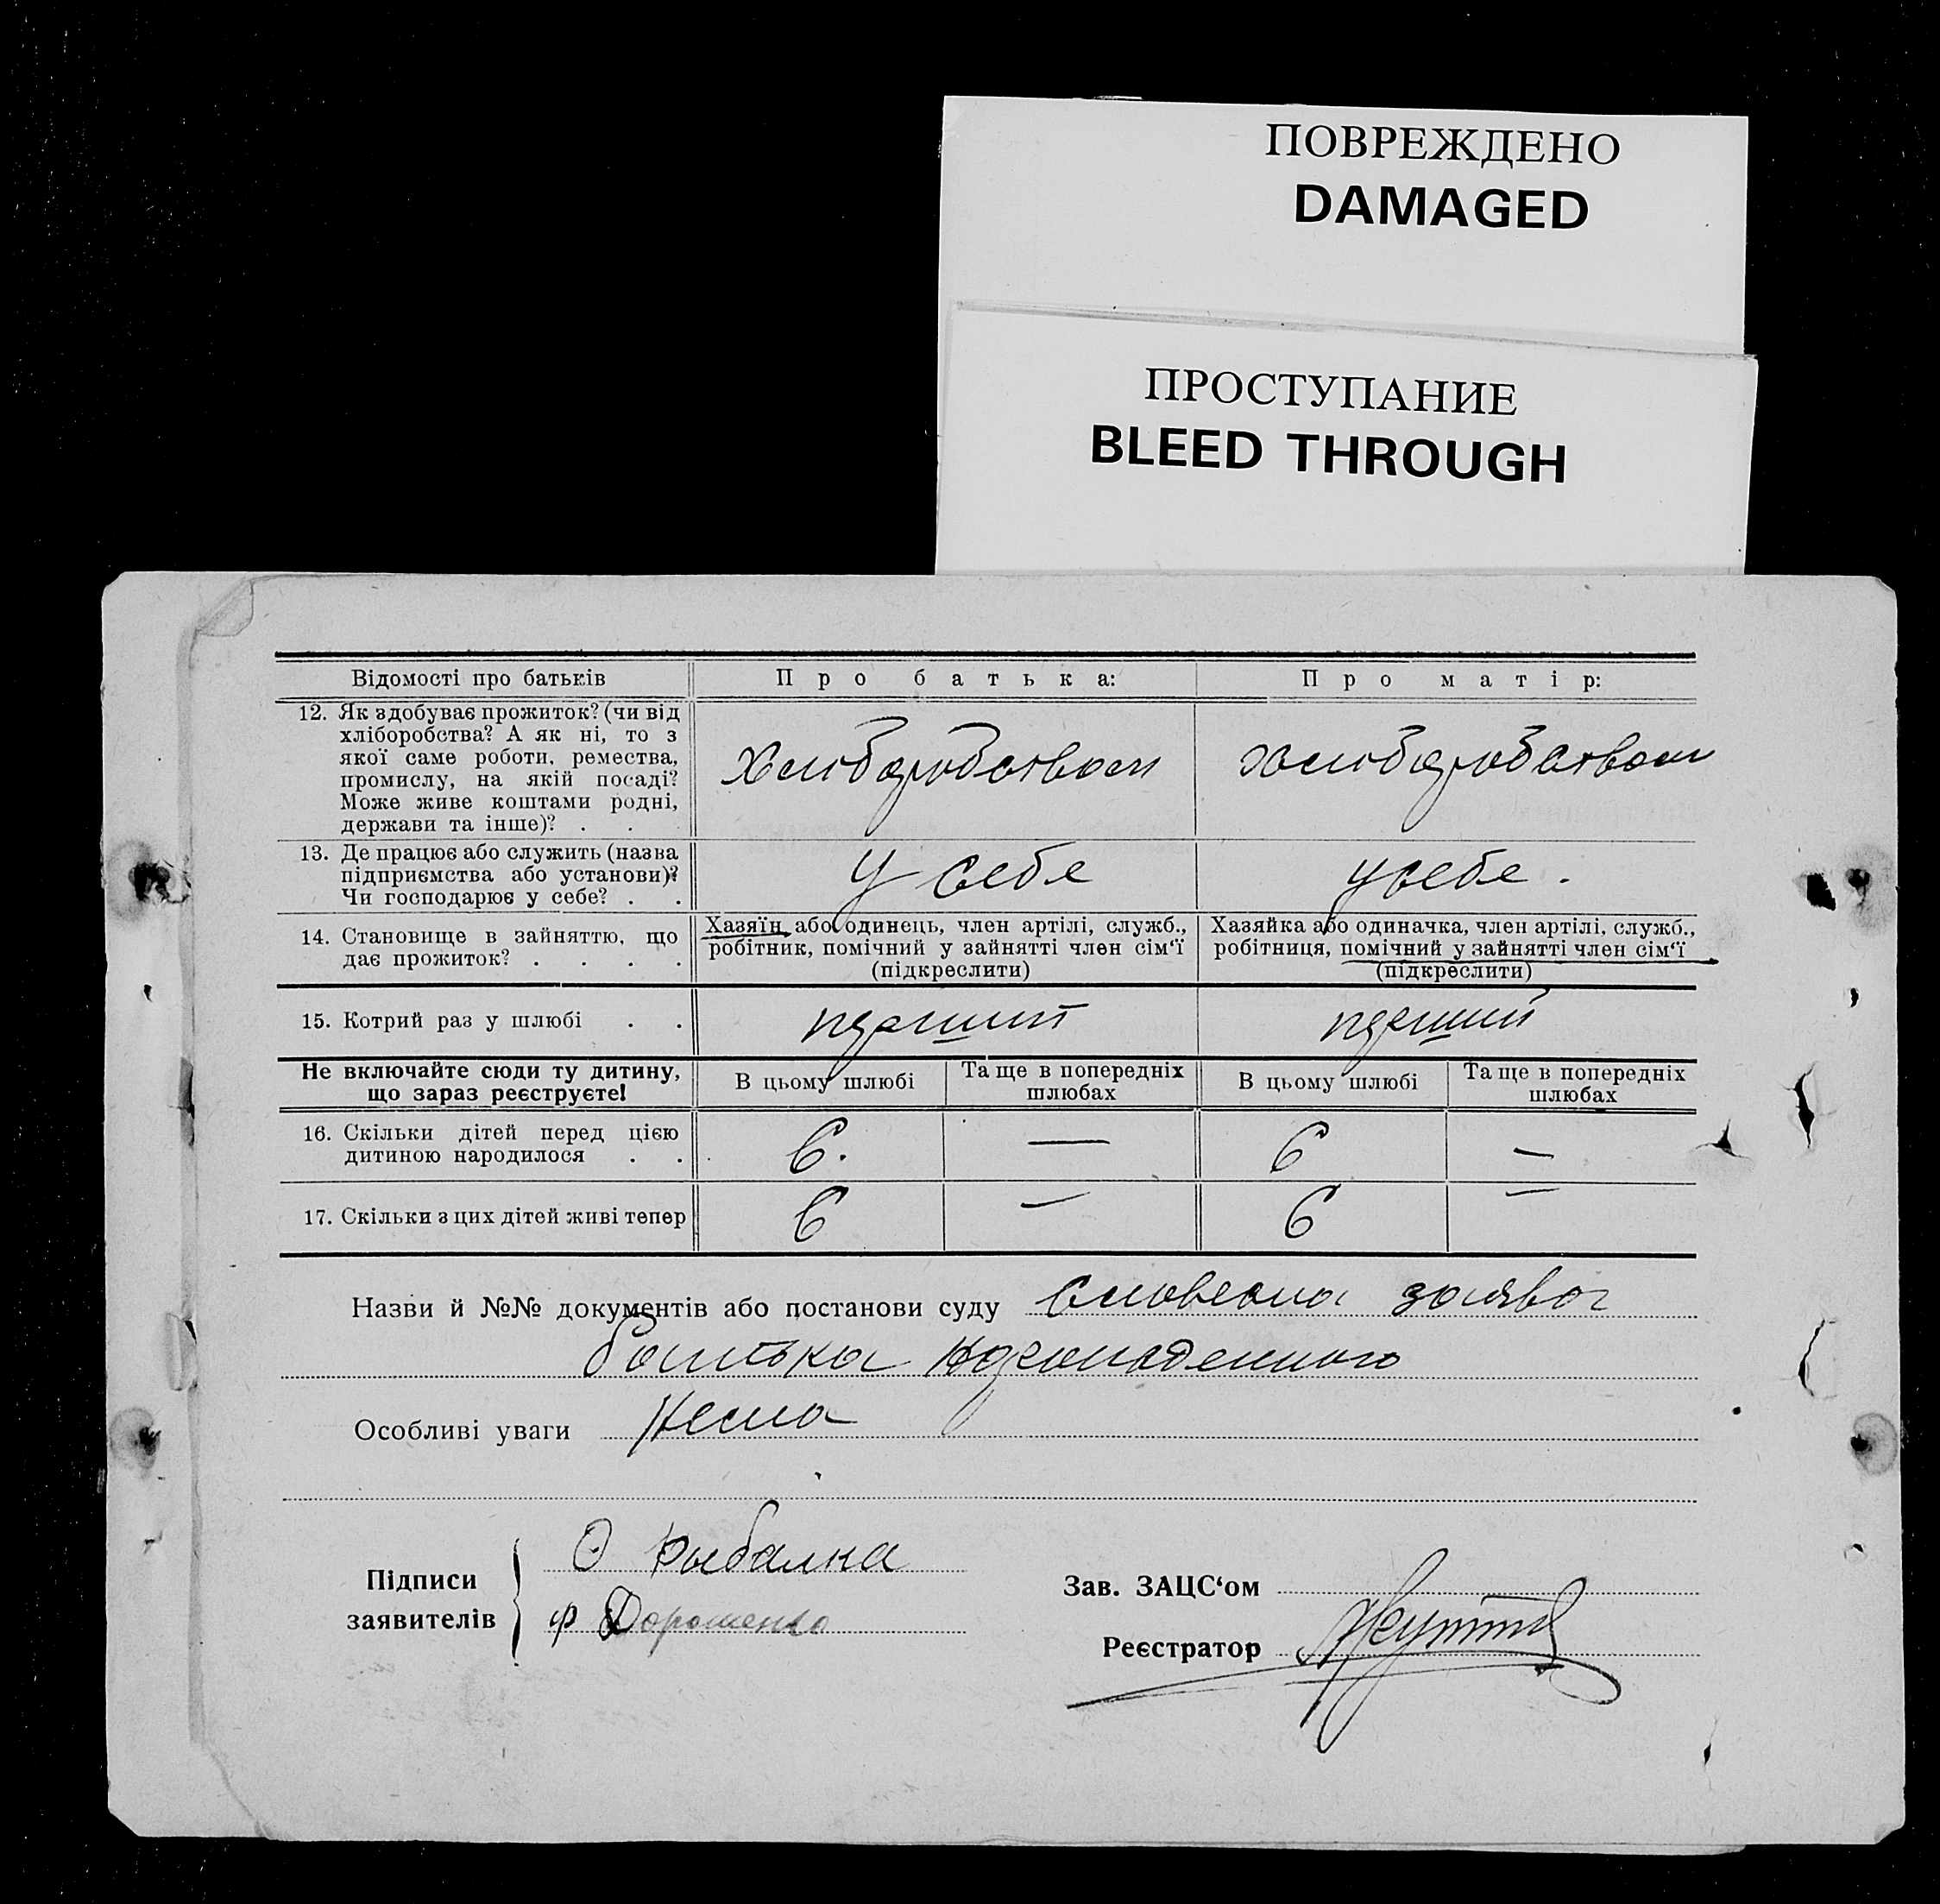 ПОВРЕЖДЕНО
DAMAGED
ПРОСТУПАНИЕ
BLEED THROUGH
Відомості про батьків Про батька: Про матір:
12. Як здобуває прожиток? (чи від
хліборобства? А як ні, то з
якої саме роботи, ремества,
промислу, на якій посаді?
Може живе коштами родні,
держави та інше)? . .
Хліборобством хліборобством
13. Де працює або служить (назва
підприємства або установи)?
Чи господарює у себе? . .
У себе у себе.
14. Становище в зайняттю, що
дає прожиток? . . . .
Хазяїн або одинець, член артілі, служб.,
робітник, помічний у зайнятті член сім‘ї
(підкреслити)
Хазяйка або одиначка, член артілі, служб.,
робітниця, помічний у зайнятті член сім‘ї
(підкреслити)
15. Котрий раз у шлюбі . . перший перший
Не включайте сюди ту дитину,
що зараз реєструєте!
В цьому шлюбі
Та ще в попередніх
шлюбах
В цьому шлюбі
Та ще в попередніх
шлюбах
16. Скільки дітей перед цією
дитиною народилося . .
6. — 6 —
17. Скільки з цих дітей живі тепер 6 — 6 —
Назви й №№ документів або постанови суду Словесна заява
батька
Особливі уваги Нема
Підписи
заявителів
О Рыбалка
Ф Дорошенко
Зав. ЗАЦС‘ом
Реєстратор